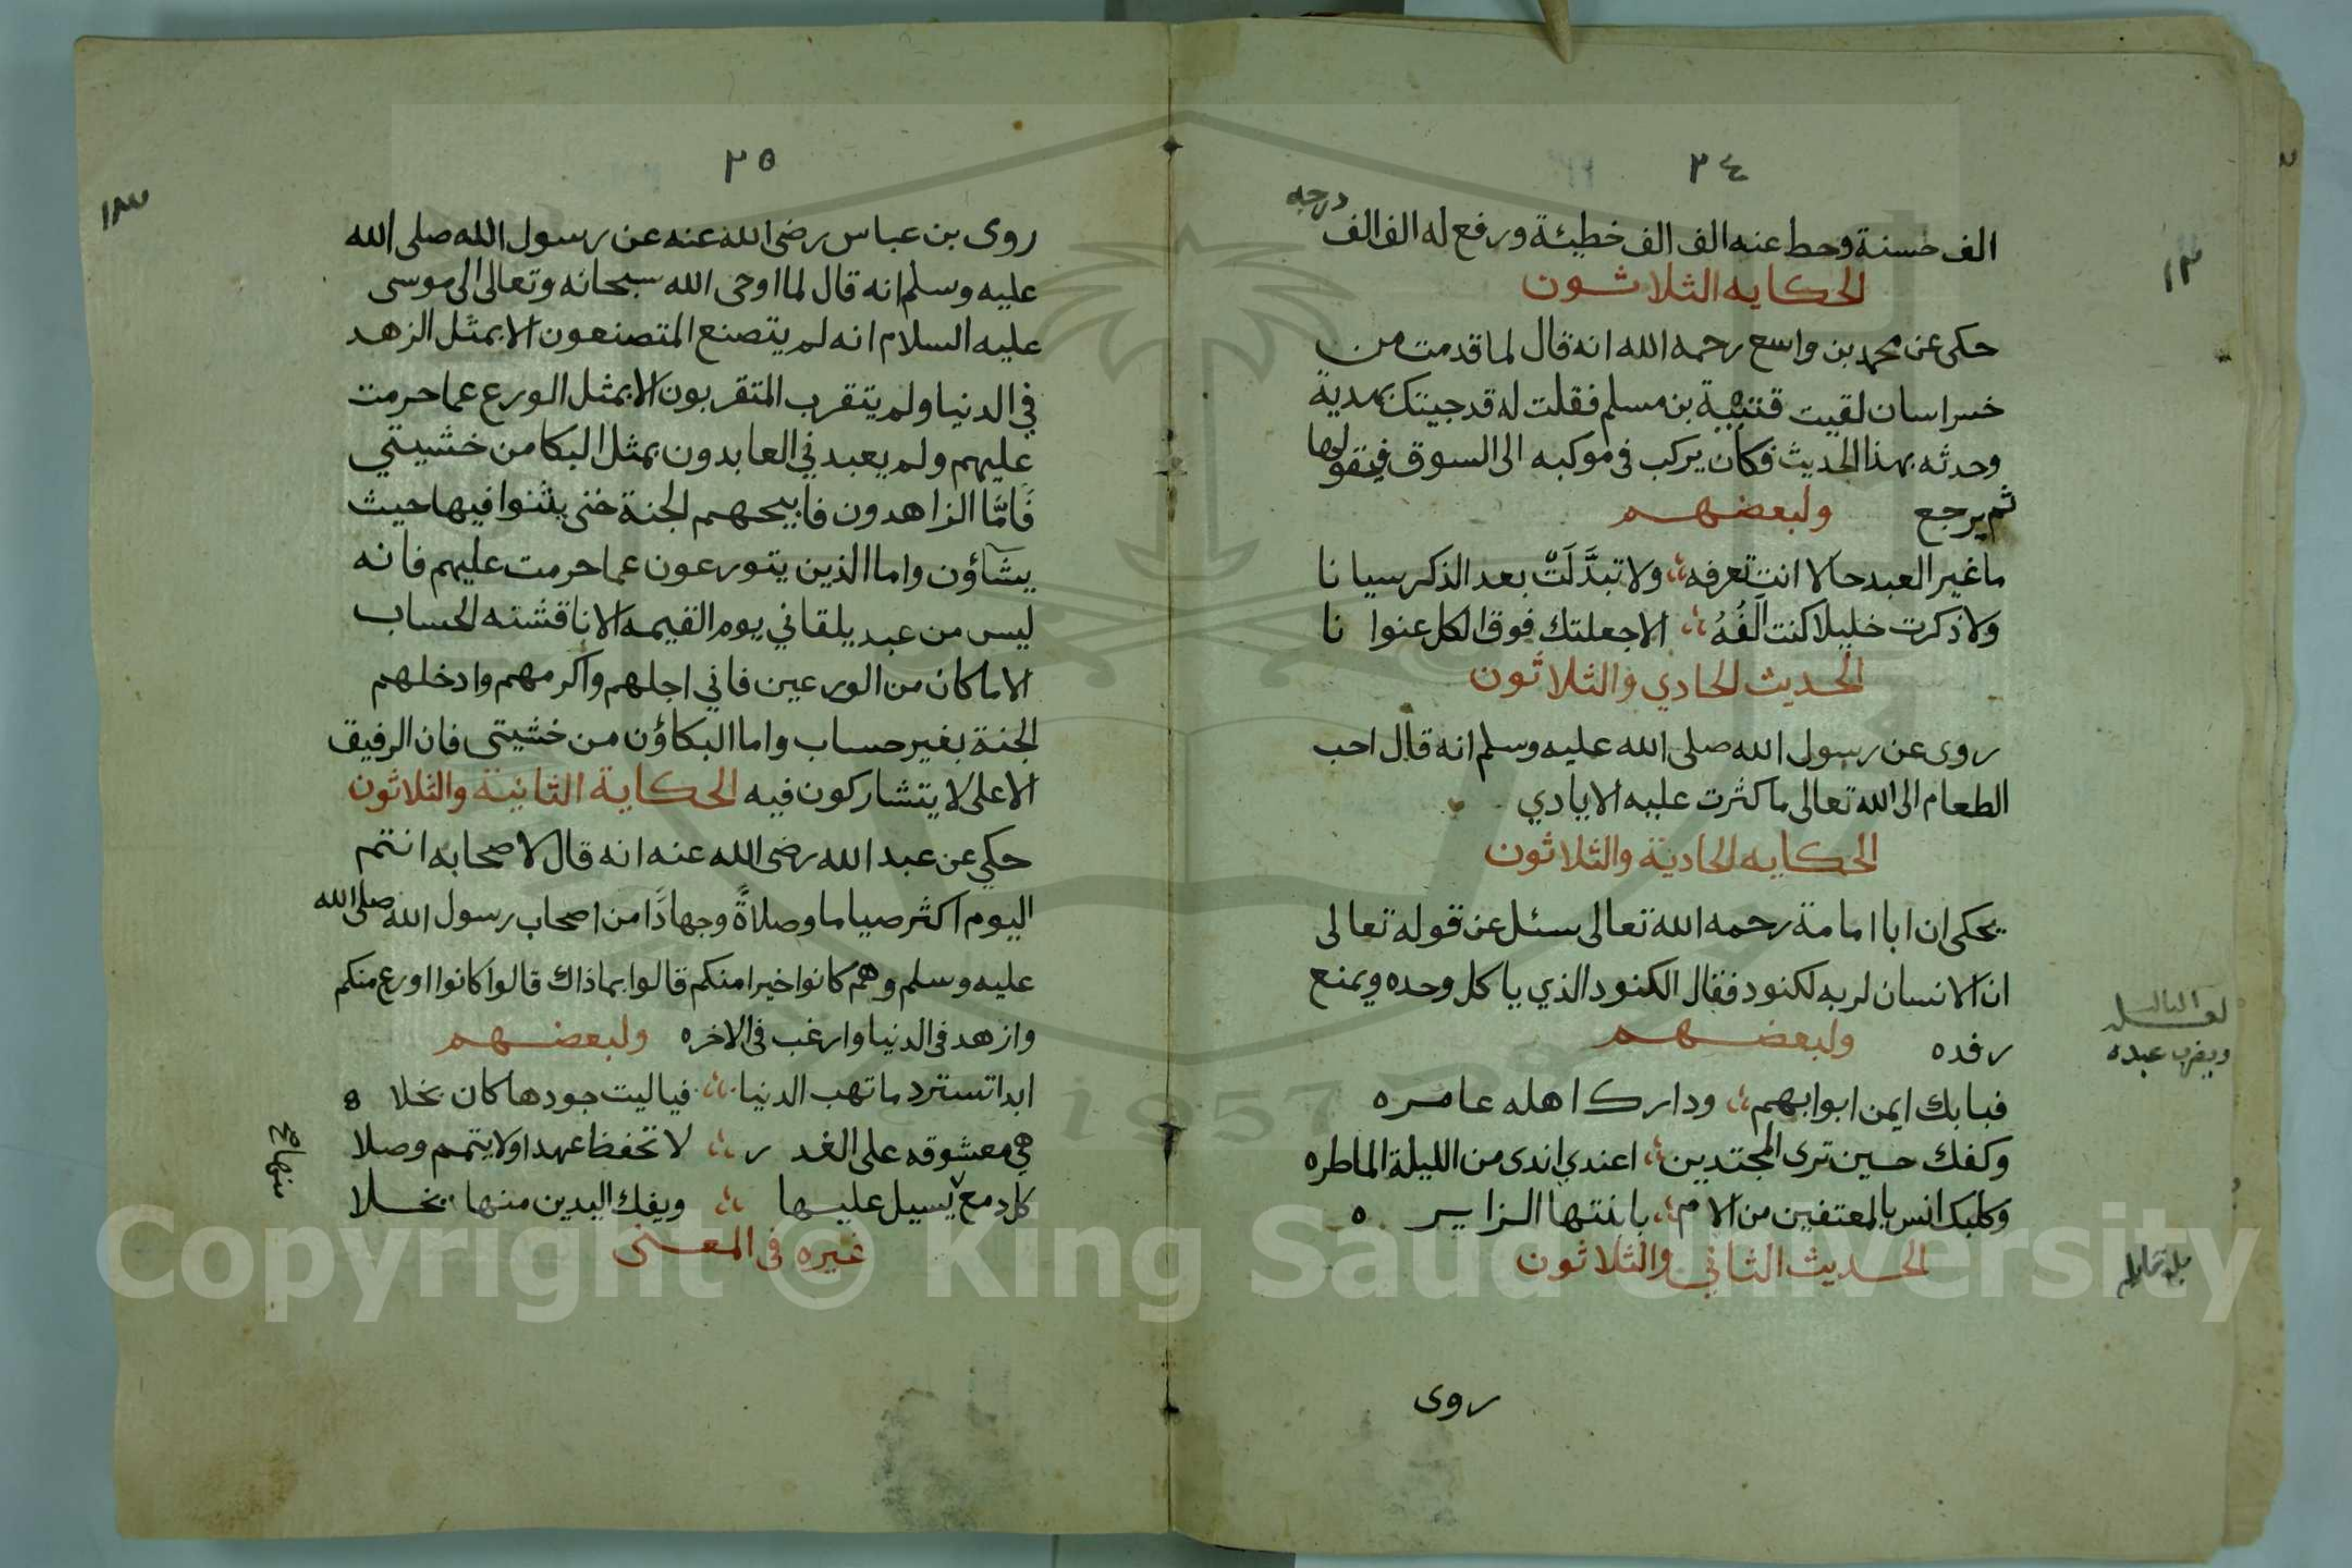 ٢٤
الف حسنة وحط عنه الف الف خطيئة ورفع له الف الف درجه
الحكايه الثلاثون
حكى عن محمد بن واسع رحمه الله انه قال لما قدمت من
خراسان لقيت قتيبة بن مسلم فقلت له قد جيتك بهدية
وحدثه بهذا الحديث فكان يركب في موكبه الى السوق فيقولها
ثم يرجع ولبعضهم
ما غير العبد حالا انت تعرفه ولا تبدَّلَتْ بعد الذكر سيانا
ولا ذكرت خليلا كنت الَفُهُ الا جعلتك فوق الكل عنوانا
الحديث الحادي والثلاثون
روى عن رسول الله صلى الله عليه وسلم انه قال احب
الطعام الى الله تعالى ما كثرت عليه الايادي
الحكايه الحادية والثلاثون
يحكى ان ابا امامة رحمه الله تعالى سئل عن قوله تعالى
ان الانسان لربه لكنود فقال الكنود الذي ياكل وحده ويمنع
رفده ولبعضهم
فبابك ايمن ابوابهم ودارك اهله عامره
وكفك حين ترى المجتدين اعندي اندى من الليلة الماطره
وكلبك انس بالمعتفين من الام بابنتها الزايره
الحديث الثاني والثلاثون
روى
١٢
ويضرب عبده
٢٥
روى بن عباس رضى الله عنه عن رسول الله صلى الله
عليه وسلم انه قال لما اوحى الله سبحانه وتعالى الى موسى
عليه السلام انه لم يتصنع المتصنعون الا بمثل الزهد
في الدنيا ولم يتقرب المتقربون الا بمثل الورع عما حرمت
عليهم ولم يعبدني العابدون بمثل البكا من خشيتي
فَامَّا الزاهدون فابيحهم الجنة حتى يثنوا فيها حيث
يشآؤن واما الذين يتورعون عما حرمت عليهم فانه
ليس من عبد يلقاني يوم القيمه الا ناقشته الحساب
الا ما كان من الورعين فاني اجلهم واكرمهم وادخلهم
الجنة بغير حساب واما البكاؤن من خشيتى فان الرفيق
الاعلى لا يتشاركون فيه الحكاية الثانية والثلاثون
حكي عن عبد الله رضى الله عنه انه قال لاصحابه انتم
اليوم اكثر صياما وصلاةً وجهادًا من اصحاب رسول الله صلى الله
عليه وسلم وهم كانوا خيرا منكم قالوا بماذاك قالوا كانوا اورع منكم
وازهد في الدنيا وارغب في الاخره ولبعضهم
ابدا تسترد ما تهب الدنيا فياليت جودها كان بخلا
هي معشوقه على الغدر لا تحفظ عهدا ولا يتمم وصلا
كل دمع يسيل عليها ويفك اليدين منها نخلا
غيره في المعنى
Copyright © King Saud University
1957